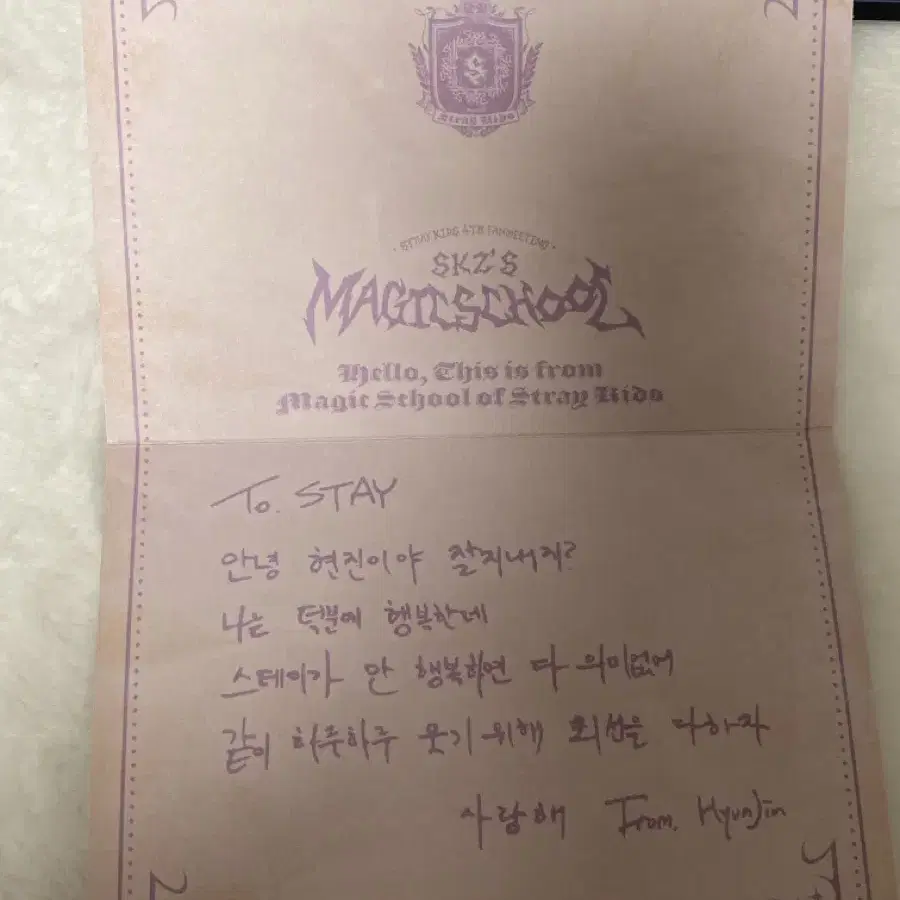 S
Stray Kids
STRAY KIDS 4TH FANMEETING
SKZ'S
MAGIC SCHOOL
Hello, This is from
Magic School of Stray Kids
To. STAY
안녕 현진이야 잘지내지?
나는 덕분에 행복한데
스테이가 안 행복하면 다 의미없어
같이 하루하루 웃기 위해 최선을 다하자
사랑해 From. HyunJin